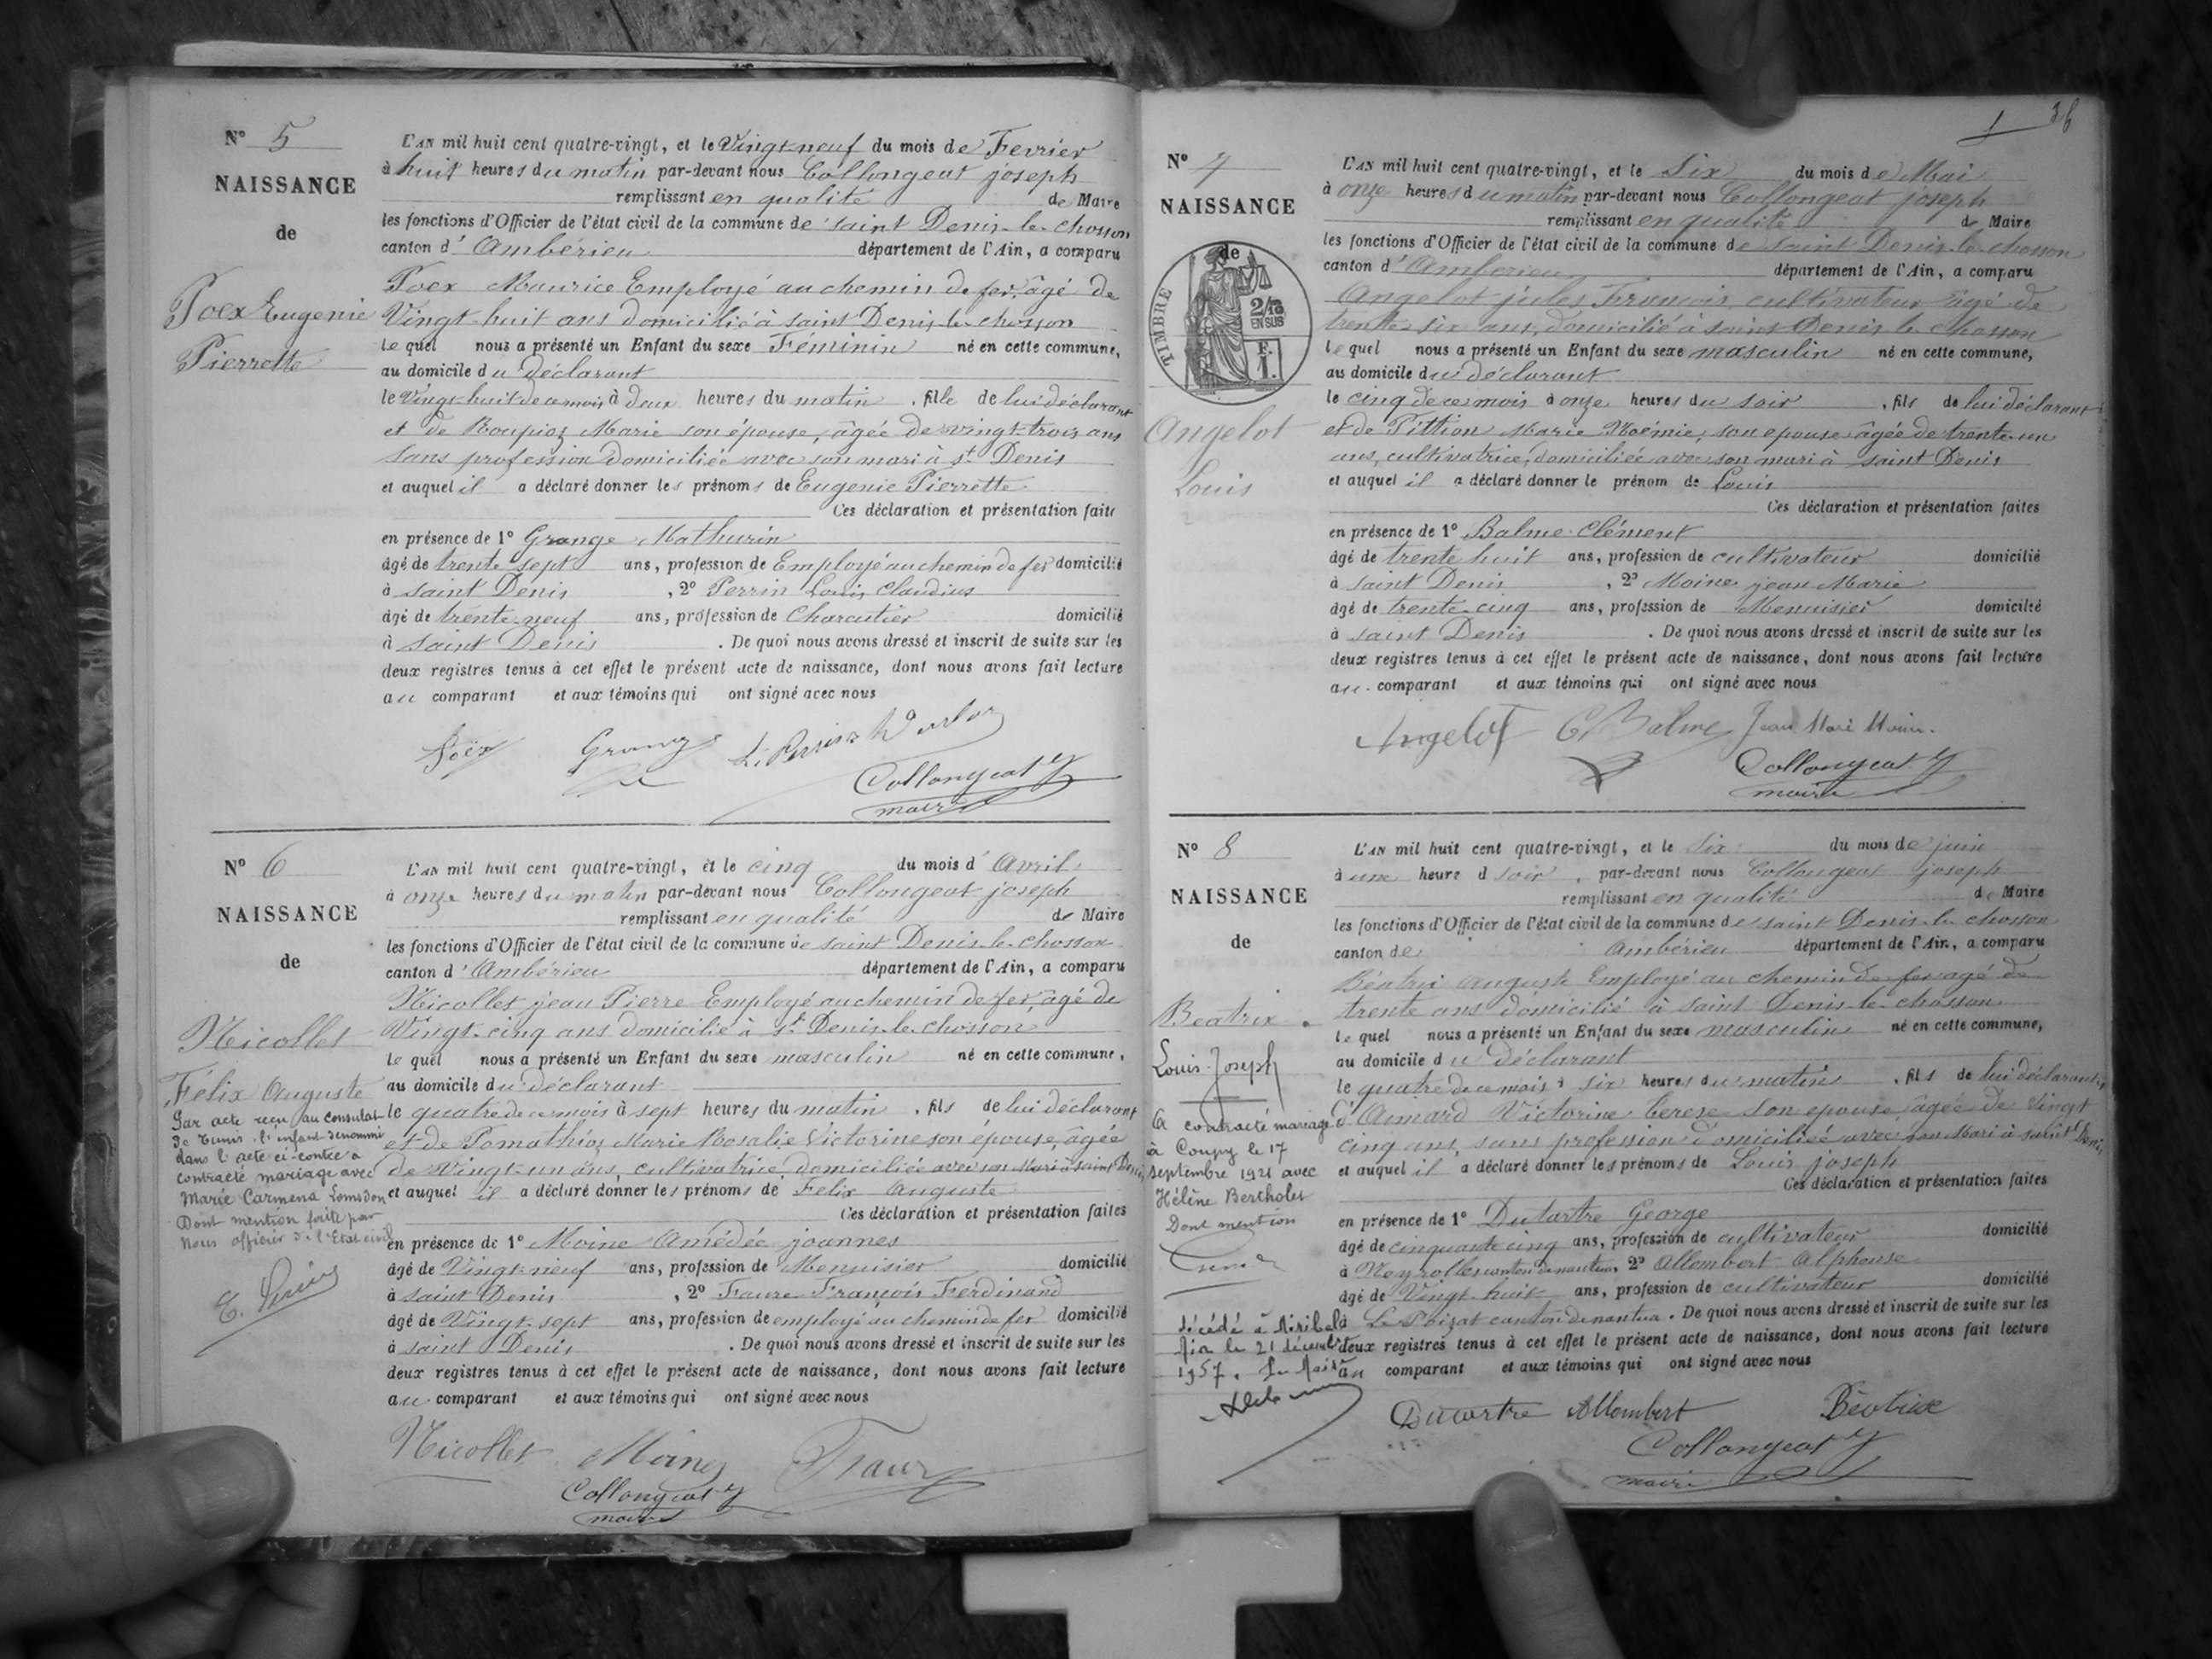 N° 5
NAISSANCE
de
Poex Eugenie
Pierrette
L'AN mil huit cent quatre-vingt, et le Vingt-neuf du mois de Fevrier
à huit heures du matin par-devant nous Collongeat joseph
remplissant en qualité de Maire
les fonctions d'Officier de l'état civil de la commune de saint Denis-le-chosson
canton d'Ambérieu département de l'Ain, a comparu
Poex Maurice Employé au chemin de fer, âgé de
Vingt-huit ans domicilié à saint Denis-le-chosson
le quel nous a présenté un Enfant du sexe Féminin né en cette commune,
au domicile du déclarant
le Vingt-huit de ce mois à deux heures du matin, fille de lui déclarant
et de Roupioz Marie son épouse, âgée de vingt-trois ans
sans profession domiciliée avec son mari à st Denis
et auquel il a déclaré donner les prénoms de Eugenie Pierrette
Ces déclaration et présentation faite
en présence de 1° Grange Mathurin
âgé de trente sept ans, profession de Employé au chemin de fer domicilié
à saint Denis, 2° Perrin Louis Claudius
âgé de trente-neuf ans, profession de Charcutier domicilié
à saint Denis. De quoi nous avons dressé et inscrit de suite sur les
deux registres tenus à cet effet le présent acte de naissance, dont nous avons fait lecture
au comparant et aux témoins qui ont signé avec nous
Poëx Grange L. Perrin
Collongeat J
maire
N° 6
NAISSANCE
de
Nicollet
Félix Auguste
Par acte reçu au consulat
de Tunis l'enfant dénommé
dans l'acte ci-contre a
contracté mariage avec
Marie Carmena
Dont mention faite par
Nous officier de l'Etat civil
L'AN mil huit cent quatre-vingt, et le cinq du mois d'Avril
à onze heures du matin par-devant nous Collongeat joseph
remplissant en qualité de Maire
les fonctions d'Officier de l'état civil de la commune de saint Denis-le-chosson
canton d'Ambérieu département de l'Ain, a comparu
Nicollet jean Pierre Employé au chemin de fer, âgé de
Vingt-cinq ans domicilié à st Denis-le-chosson
le quel nous a présenté un Enfant du sexe masculin né en cette commune,
au domicile du déclarant
le quatre de ce mois à sept heures du matin, fils de lui déclarant
et de Pomathios Marie Rosalie Victorine son épouse, âgée
de Vingt-un ans, cultivatrice domiciliée avec son Mari à saint Denis
et auquel il a déclaré donner les prénoms de Felix Auguste
Ces déclaration et présentation faites
en présence de 1° Moine Amedée joannes
âgé de Vingt-neuf ans, profession de Menuisier domicilié
à saint Denis, 2° Faure François Ferdinand
âgé de Vingt-sept ans, profession de employé au chemin de fer domicilié
à saint Denis. De quoi nous avons dressé et inscrit de suite sur les
deux registres tenus à cet effet le présent acte de naissance, dont nous avons fait lecture
au comparant et aux témoins qui ont signé avec nous
Nicollet Moine Faure
Collongeat J
maire
1 36
N° 7
NAISSANCE
de
TIMBRE
2/10
EN SUS
F.
1.
Angelot
Louis
L'AN mil huit cent quatre-vingt, et le Six du mois de Mai
à onze heures du matin par-devant nous Collongeat joseph
remplissant en qualité de Maire
les fonctions d'Officier de l'état civil de la commune de saint Denis-le-chosson
canton d'Amberieu département de l'Ain, a comparu
Angelot jules François cultivateur âgé de
trente-six ans, domicilié à saint Denis-le-chosson
le quel nous a présenté un Enfant du sexe masculin né en cette commune,
au domicile du déclarant
le cinq de ce mois à onze heures du soir, fils de lui déclarant
et de Pittion Marie Noémie, son epouse âgée de trente-un
ans, cultivatrice, domiciliée avec son mari à saint Denis
et auquel il a déclaré donner le prénom de Louis
Ces déclaration et présentation faites
en présence de 1° Balme Clément
âgé de trente huit ans, profession de cultivateur domicilié
à saint Denis, 2° Moine jean Marie
âgé de trente-cinq ans, profession de Menuisier domicilié
à saint Denis. De quoi nous avons dressé et inscrit de suite sur les
deux registres tenus à cet effet le présent acte de naissance, dont nous avons fait lecture
au comparant et aux témoins qui ont signé avec nous
Angelot C Balme Jean Marie Moine
Collongeat J
maire
N° 8
NAISSANCE
de
Beatrix
Louis-Joseph
A contracté mariage
à Coupy le 17
septembre 1921 avec
Hélène Bertholet
Dont mention
décédé à Miribel
Ain le 21 décembre
1957. Le Maire
L'AN mil huit cent quatre-vingt, et le Six du mois de juin
à une heure d soir, par-devant nous Collongeat joseph
remplissant en qualité de Maire
les fonctions d'Officier de l'état civil de la commune de saint Denis-le-chosson
canton de Ambérieu département de l'Ain, a comparu
Béatrix Auguste Employé au chemin de fer agé de
trente ans domicilié à saint Denis-le-chosson
le quel nous a présenté un Enfant du sexe masculin né en cette commune,
au domicile du déclarant
le quatre de ce mois à six heures du matin, fils de lui déclarant
d'Aimard Victorine Terese son epouse, âgée de Vingt
cinq ans, sans profession domiciliée avec son Mari à saint Denis
et auquel il a déclaré donner les prénoms de Louis joseph
Ces déclaration et présentation faites
en présence de 1° Dutartre George
âgé de cinquante cinq ans, profession de cultivateur domicilié
à Neyrolles canton de nantua, 2° Allembert Alphonse
âgé de Vingt-huit ans, profession de cultivateur domicilié
à Le Poizat canton de nantua. De quoi nous avons dressé et inscrit de suite sur les
deux registres tenus à cet effet le présent acte de naissance, dont nous avons fait lecture
au comparant et aux témoins qui ont signé avec nous
Dutartre Allombert Béatrix
Collongeat J
maire